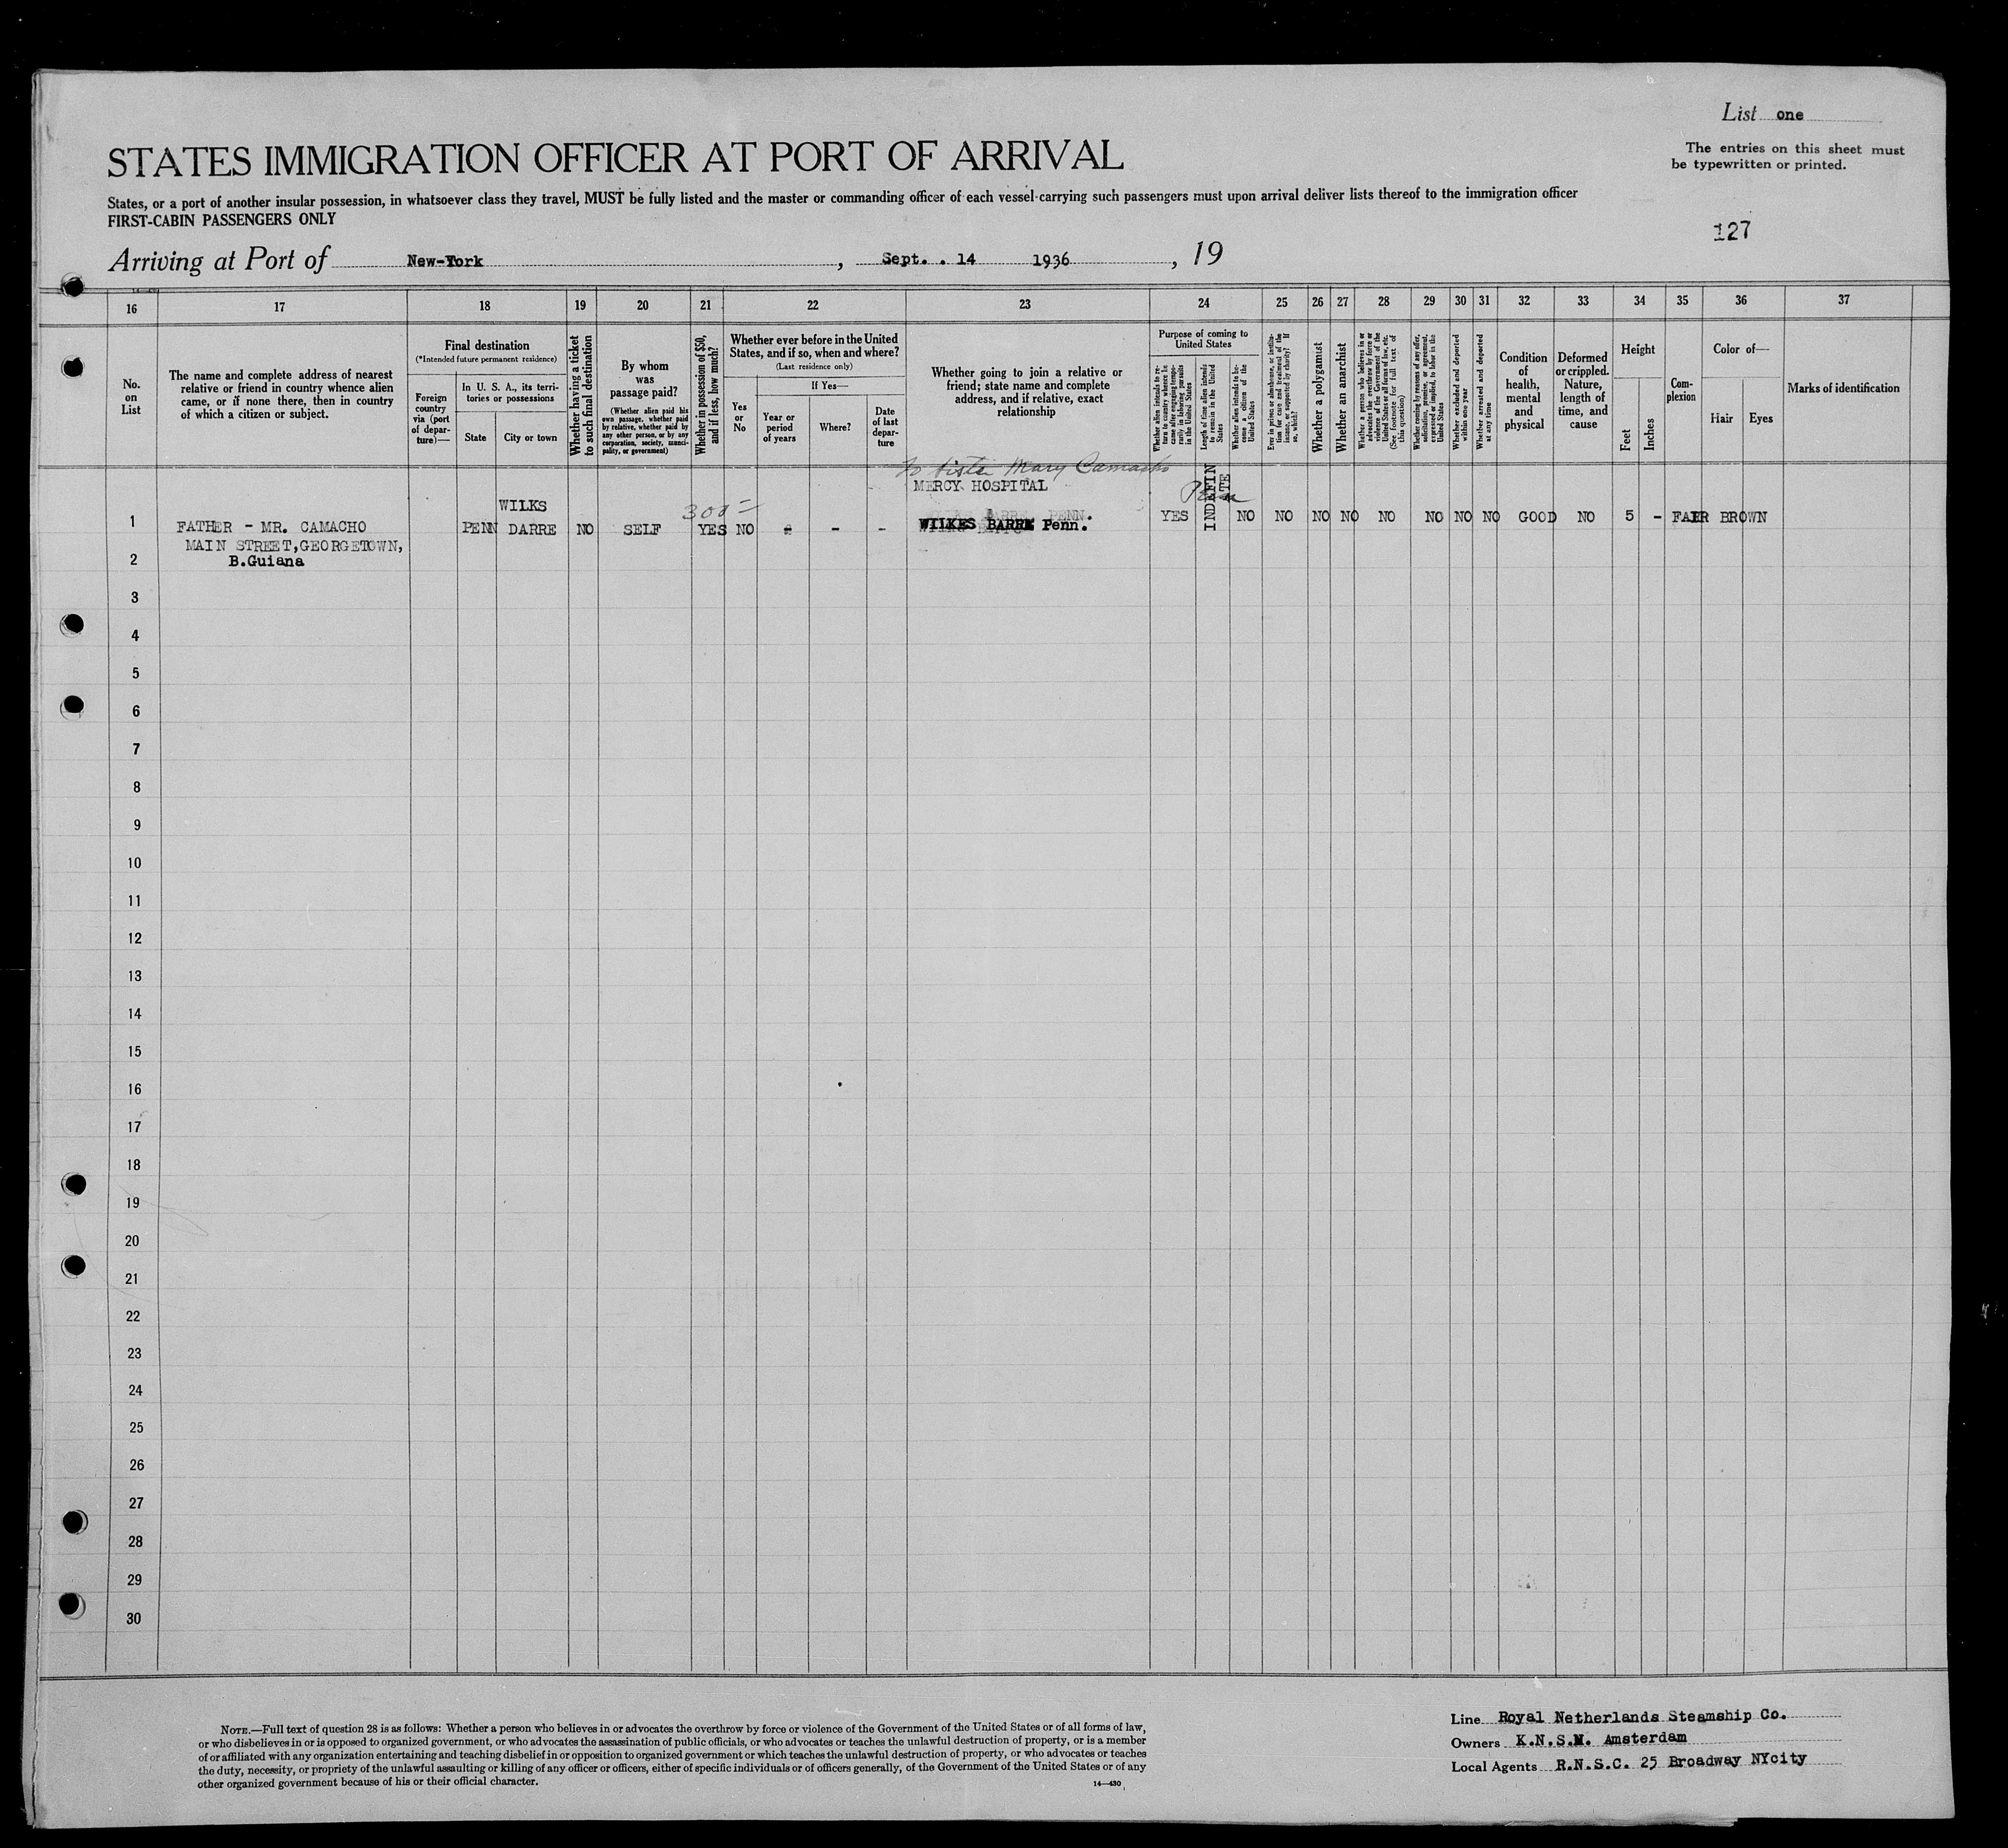 List one
The entries on this sheet must
be typewritten or printed.
STATES IMMIGRATION OFFICER AT PORT OF ARRIVAL
States, or a port of another insular possession, in whatsoever class they travel, MUST be fully listed and the master or commanding officer of each vessel carrying such passengers must upon arrival deliver lists thereof to the immigration officer
FIRST-CABIN PASSENGERS ONLY
127
Arriving at Port of New-York, Sept. . 14 1936, 19
16 17 18 19 20 21 22 23 24 25 26 27 28 29 30 31 32 33 34 35 36 37
No.
on
List
The name and complete address of nearest
relative or friend in country whence alien
came, or if none there, then in country
of which a citizen or subject.
Final destination
(*Intended future permanent residence)
Foreign
country
via (port
of depar-
ture)—
In U. S. A., its terri-
tories or possessions
State
City or town
Whether having a ticket
to such final destination
By whom
was
passage paid?
(Whether alien paid his
own passage, whether paid
by relative, whether paid by
any other person, or by any
corporation, society, munici-
pality, or government)
Whether in possession of $50,
and if less, how much?
Whether ever before in the United
States, and if so, when and where?
(Last residence only)
Yes
or
No
If Yes—
Year or
period
of years
Where?
Date
of last
depar-
ture
Whether going to join a relative or
friend; state name and complete
address, and if relative, exact
relationship
Purpose of coming to
United States
Whether alien intends to re-
turn to country whence he
came after engaging tempo-
rarily in laboring pursuits
in the United States
Length of time alien intends
to remain in the United
States
Whether alien intends to be-
come a citizen of the
United States
Ever in prison or almshouse, or institu-
tion for care and treatment of the
insane, or supported by charity? If
so, which?
Whether a polygamist
Whether an anarchist
Whether a person who believes in or
advocates the overthrow by force or
violence of the Government of the
United States or all forms of law, etc.
(See footnote for full text of
this question)
Whether coming by reasons of any offer,
solicitation, promise, or agreement,
expressed or implied, to labor in the
United States
Whether excluded and deported
within one year
Whether arrested and deported
at any time
Condition
of
health,
mental
and
physical
Deformed
or crippled.
Nature,
length of
time, and
cause
Height
Feet
Inches
Com-
plexion
Color of—
Hair
Eyes
Marks of identification
To Sister Mary Camacho
MERCY HOSPITAL
WILKS
300
INDEFIN
ATE
1 FATHER - MR. CAMACHO PENN DARRE NO SELF YES NO - - - WILKES BARRE Penn. YES NO NO NO NO NO NO NO NO GOOD NO 5 - FAIR BROWN
MAIN STREET, GEORGETOWN,
2 B.Guiana
3
4
5
6
7
8
9
10
11
12
13
14
15
16
17
18
19
20
21
22
23
24
25
26
27
28
29
30
NOTE.—Full text of question 28 is as follows: Whether a person who believes in or advocates the overthrow by force or violence of the Government of the United States or of all forms of law,
or who disbelieves in or is opposed to organized government, or who advocates the assassination of public officials, or who advocates or teaches the unlawful destruction of property, or is a member
of or affiliated with any organization entertaining and teaching disbelief in or opposition to organized government or which teaches the unlawful destruction of property, or who advocates or teaches
the duty, necessity, or propriety of the unlawful assaulting or killing of any officer or officers, either of specific individuals or of officers generally, of the Government of the United States or of any
other organized government because of his or their official character.
14—430
Line Royal Netherlands Steamship Co.
Owners K.N.S.M. Amsterdam
Local Agents R.N.S.C. 25 Broadway NYcity